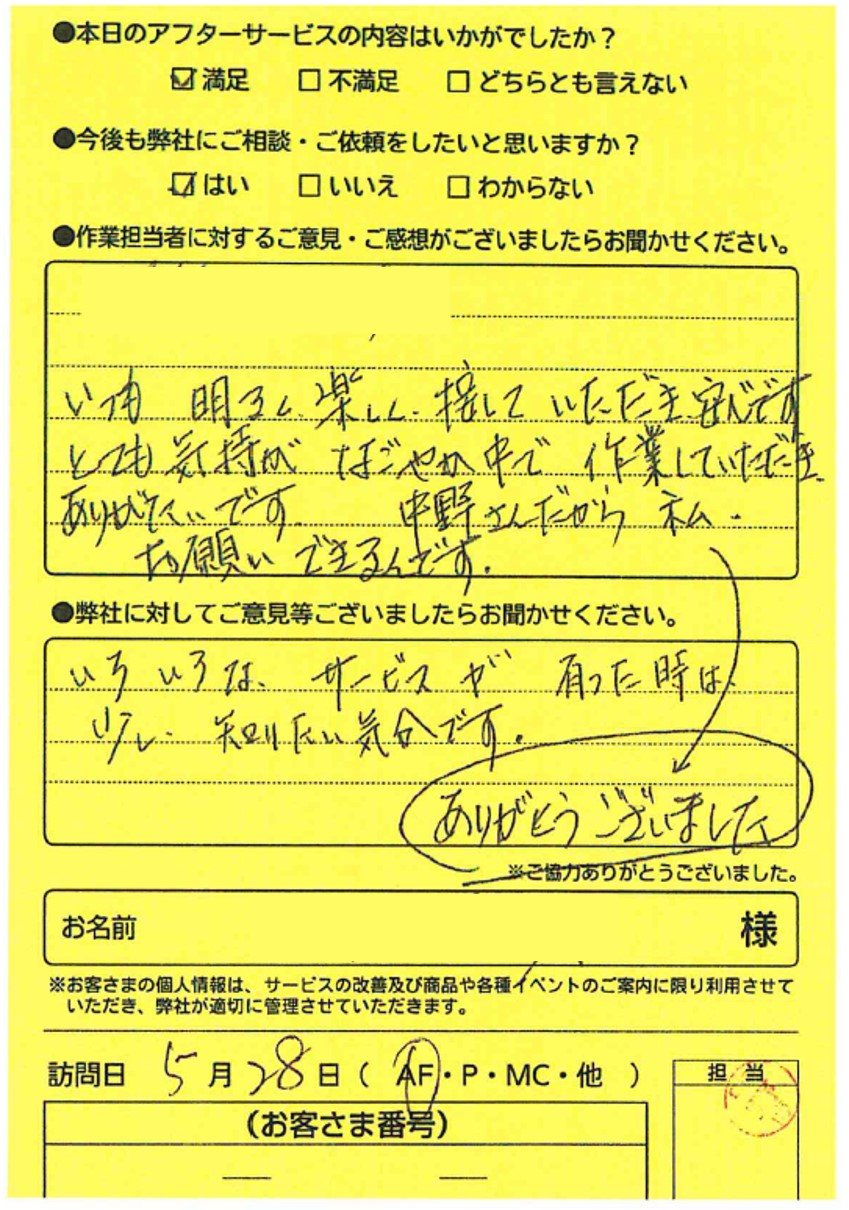 ●本日のアフターサービスの内容はいかがでしたか？
☑ 満足 □ 不満足 □ どちらとも言えない
●今後も弊社にご相談・ご依頼をしたいと思いますか？
☑ はい □ いいえ □ わからない
●作業担当者に対するご意見・ご感想がございましたらお聞かせください。
いつも 明るく、楽しく、接して いただき、安心です
とても 気持が なごやか中で 作業していただき、
ありがたいです。 中野さんだから 私.
お願い できるんです。
●弊社に対してご意見等ございましたらお聞かせください。
いろいろな、サービスが 有った時は、
少し 知りたい気分です。
ありがとうございました
※ご協力ありがとうございました。
お名前 様
※お客さまの個人情報は、サービスの改善及び商品や各種イベントのご案内に限り利用させて
いただき、弊社が適切に管理させていただきます。
訪問日 5月28日（ AF・P・MC・他 ）
担 当
（お客さま番号）